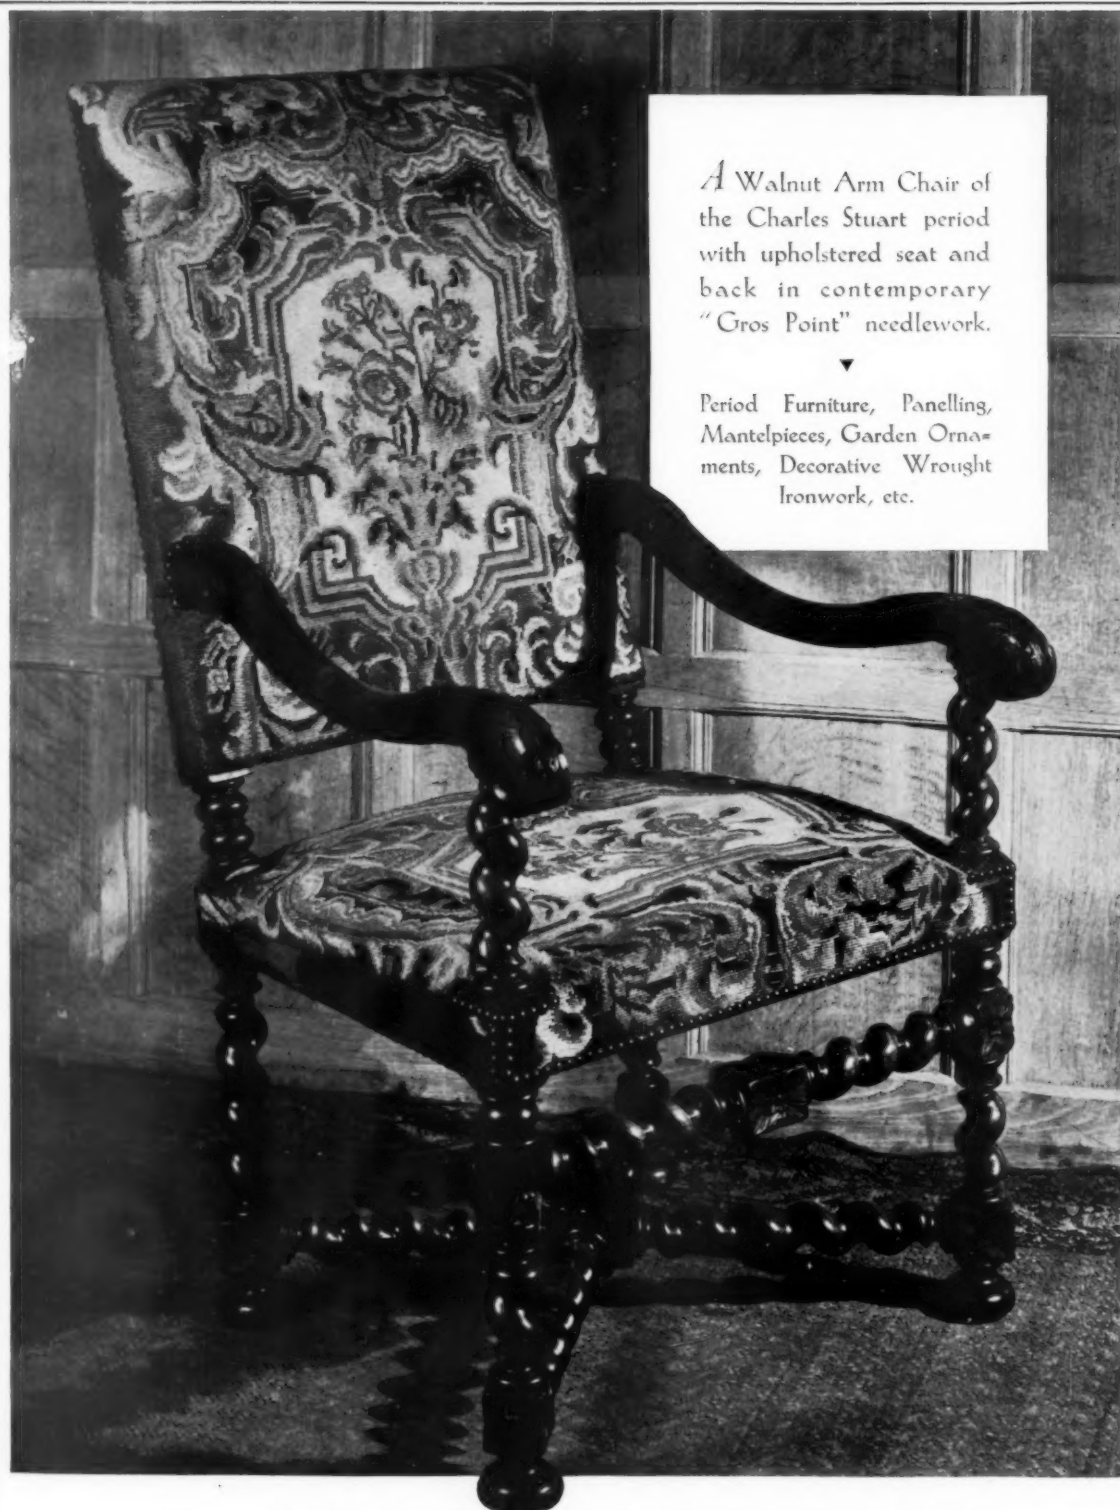 A Walnut Arm Chair of
the Charles Stuart period
with upholstered seat and
back in contemporary
"Gros Point" needlework.
Period Furniture, Panelling,
Mantelpieces, Garden Orna=
ments, Decorative Wrought
Ironwork, etc.